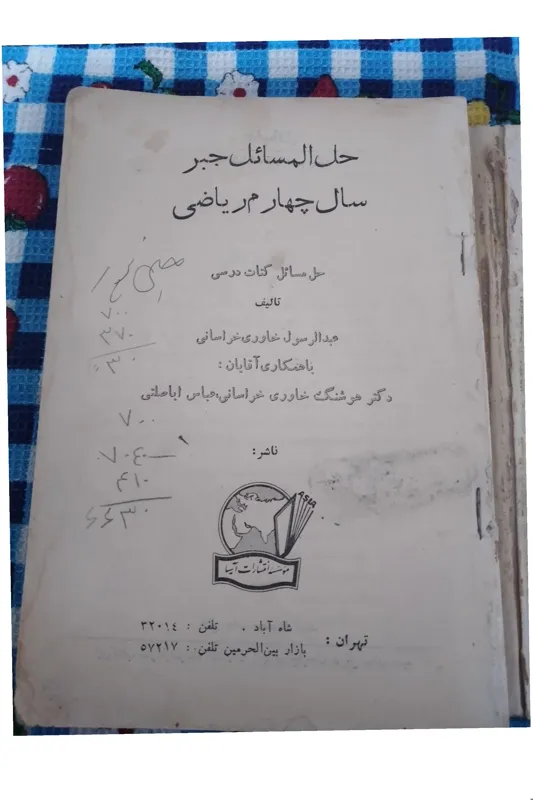 حل المسائل جبر
سال چهارم ریاضی
حل مسائل کتاب درسی
تالیف
عبدالرسول خاوری خراسانی
باهمکاری آقایان :
دکتر هوشنگ خاوری خراسانی، عباس اباصلتی
ناشر :
ASIA
موسسه انتشارات آسیا
تهران :
شاه آباد . تلفن : ۳۲۰۱۴
بازار بین‌الحرمین تلفن : ۵۷۲۱۷
۷۰۰
۳۷۰
۷۰۰
۴۱۰